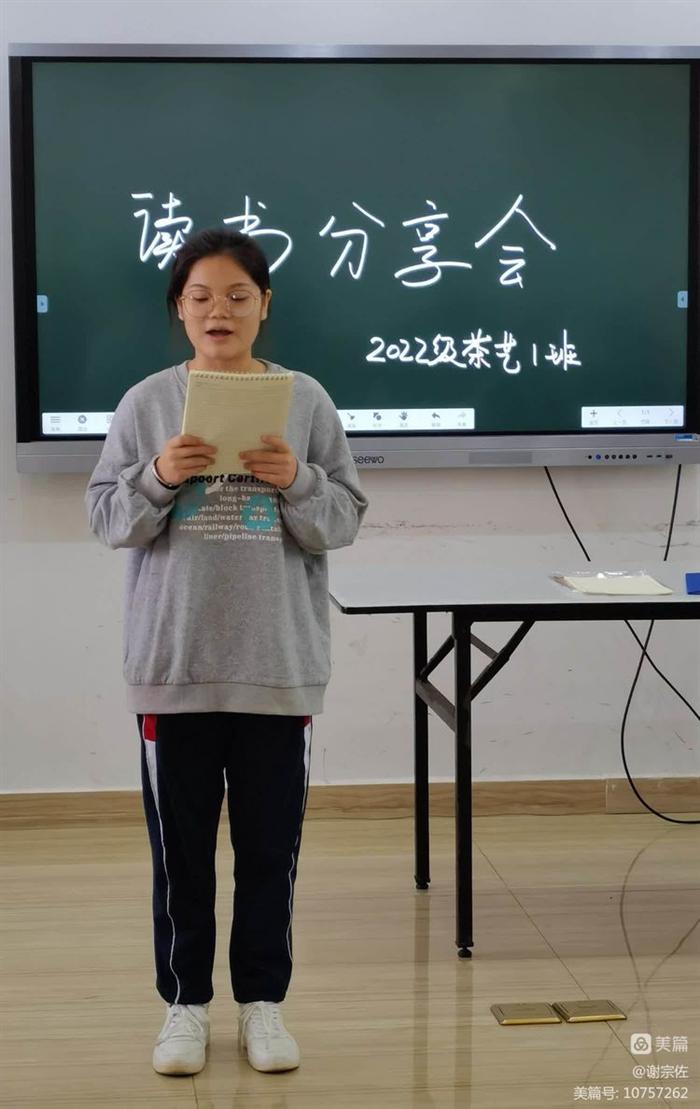 读书分享会
2022级茶艺1班
seewo
long-ha
ate/block
air/land/water
ocean/railway/
liner/pipeline trans
美篇
@谢宗佐
美篇号: 10757262